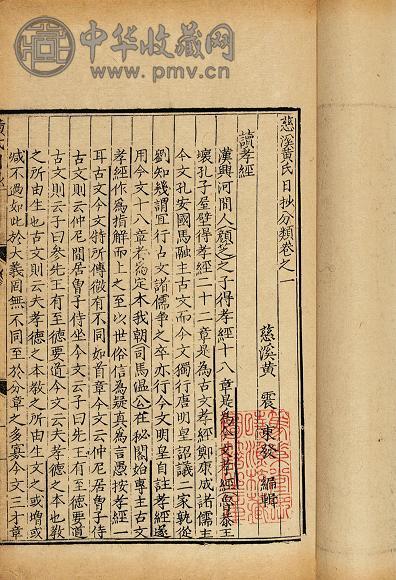 中华收藏网
www.pmv.cn
慈溪黃氏日抄分類卷之一
慈溪黃 震 東發 編輯
讀孝經
漢興河間人顏芝之子得孝經十八章是為今文孝經魯恭王
壞孔子屋壁得孝經二十二章是為古文孝經鄭康成諸儒主
今文孔安國馬融主古文而今文獨行唐明皇詔議二家孰從
劉知幾謂宜行古文諸儒爭之卒亦行今文明皇自註孝經遂
用今文十八章者為定本我朝司馬溫公在秘閣始專主古文
孝經作為指解而上之至以世俗信為疑真為言愚按孝經一
耳古文今文特所傳微有不同如首章今文云仲尼居曾子侍
古文則云仲尼閒居曾子侍坐今文云子曰先王有至德要道
古文則云子曰參先王有至德要道今文云夫孝德之本也教
之所由生也古文則云夫孝德之本教之所由生文之或增或
減不過如此於大義固無不同至於分章之多寡今文三才章